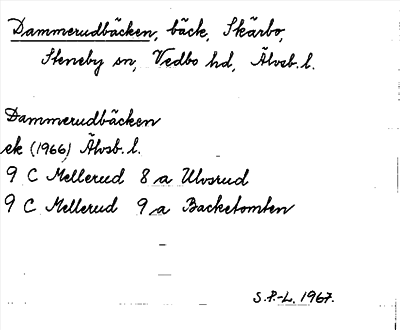 Dammerudbäcken, bäck, Skärbo,
Steneby sn, Vedbo hd, Älvsb. l.
Dammerudbäcken
ek (1966) Älvsb. l.
9 C Mellerud 8 a Ulvsrud
9 C Mellerud 9 a Backetomten
S.P.-L. 1967.